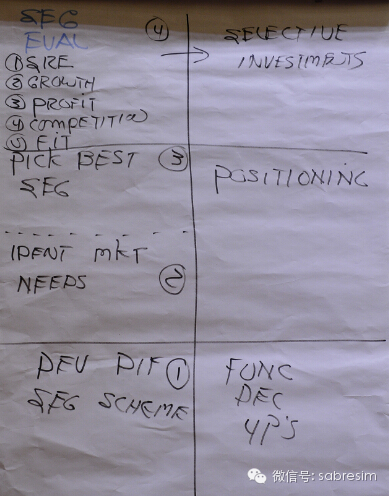 SEG
EVAL
④
① SIZE
② GROWTH
③ PROFIT
④ COMPETITION
⑤ FIT
→ SELECTIVE
INVESTMENTS
PICK BEST ③
SEG
POSITIONING
IDENT MKT
NEEDS ②
DEV DIF ①
SEG SCHEME
FUNC
DEC
4P'S
微信号: sabresim